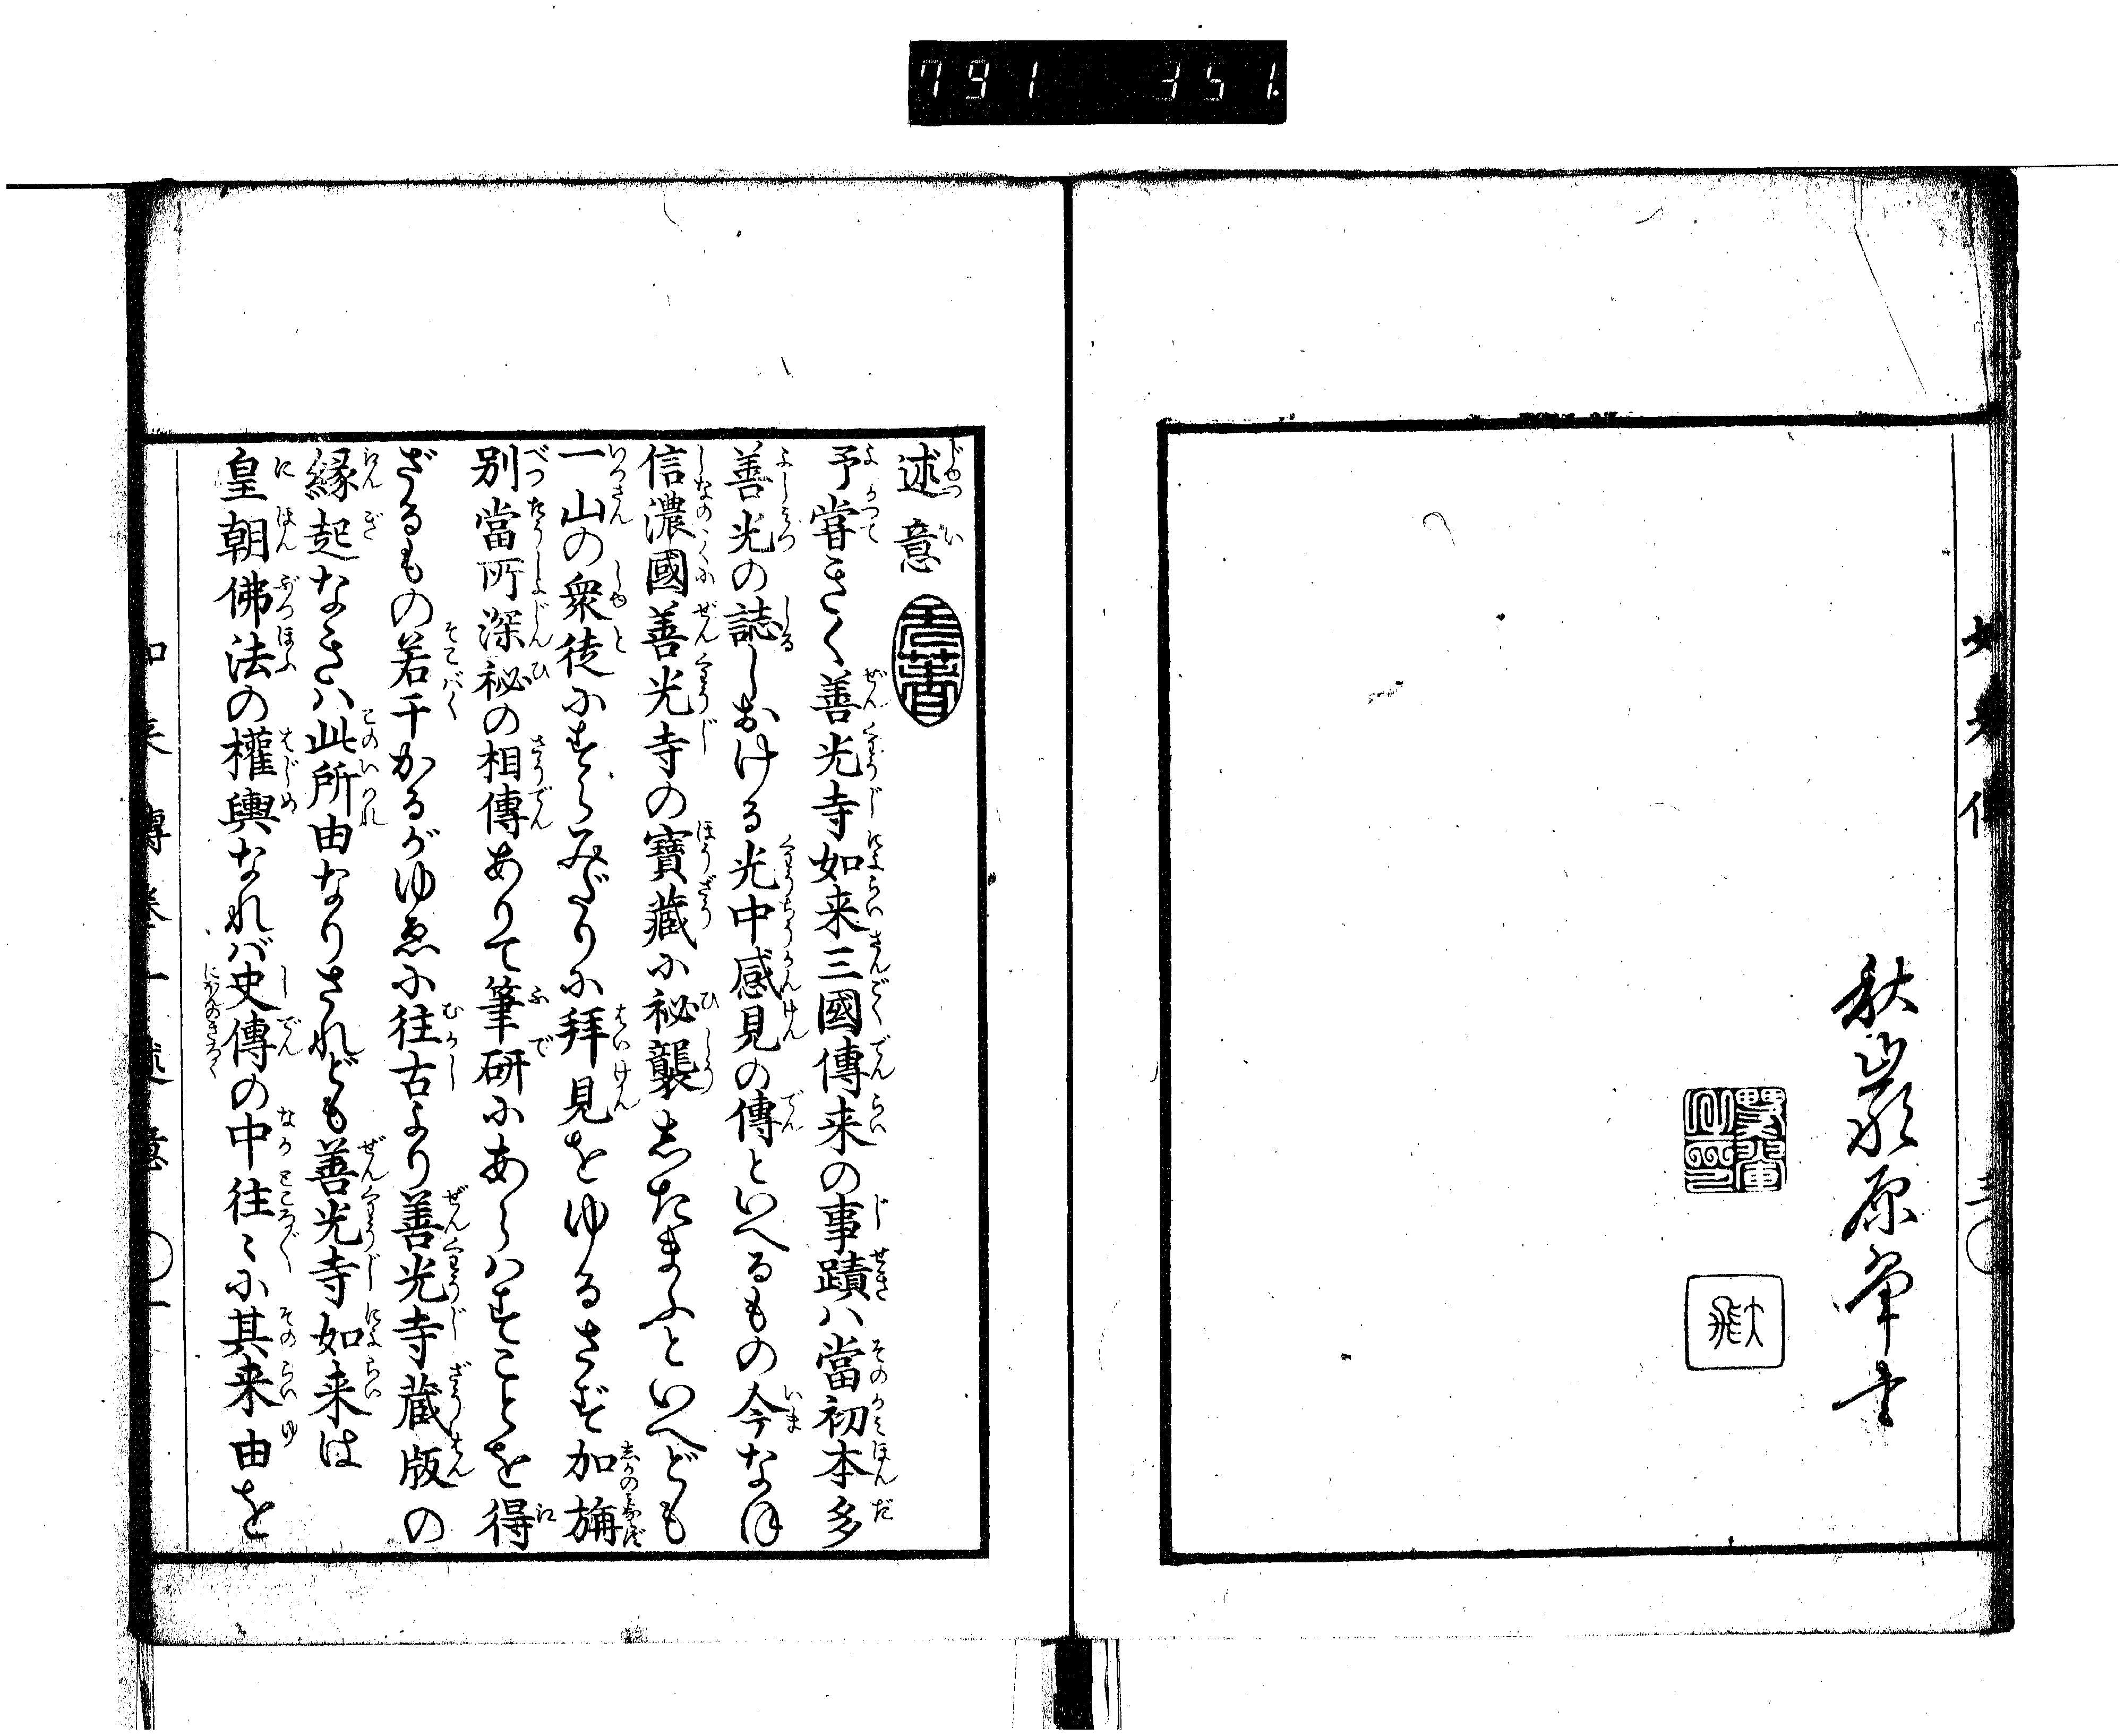 791 351.
秋巌原翬書
述意
予甞きく善光寺如来三國傳来の事蹟ハ當初本多
善光の誌しおける光中感見の傳といへるもの今なほ
信濃國善光寺の寶藏に秘襲したまふといへども
一山の衆徒にすらみだりに拜見をゆるさず加旃
別當所深祕の相傳ありて筆研にあらハすことを得
ざるもの若干かるがゆゑに往古より善光寺蔵版の
縁起なきハ此所由なりされども善光寺如来は
皇朝佛法の權輿なれバ史傳の中往々に其来由を